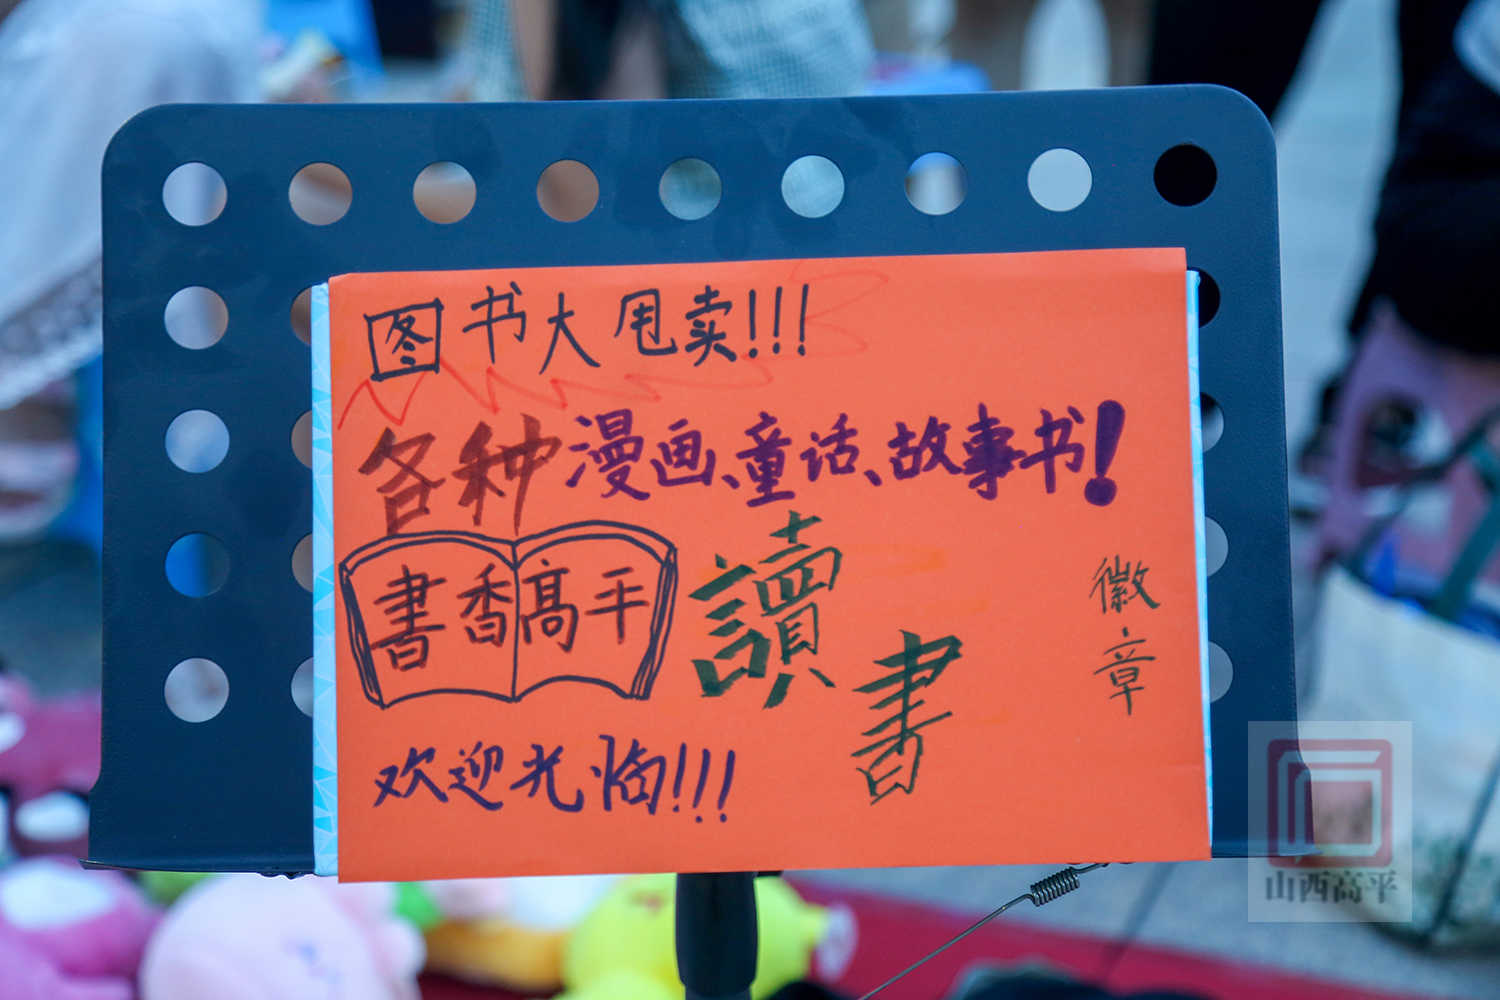 图书大甩卖!!!
各种漫画、童话、故事书!
書香高平
讀書
徽章
欢迎光临!!!
山西高平